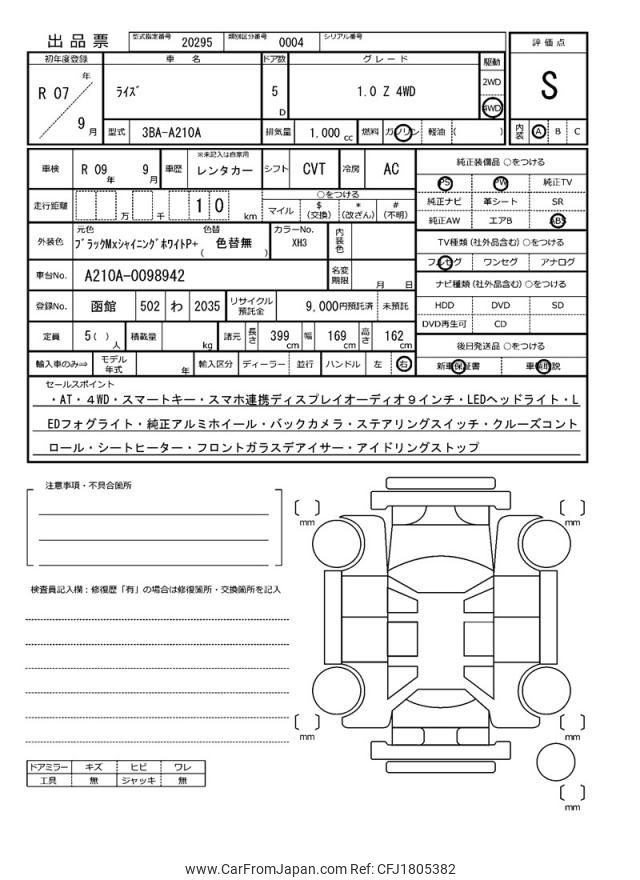 出品票 型式指定番号 20295 類別区分番号 0004 シリアル番号
評価点
S
内装 A B C
初年度登録 車名 ドア数 グレード 駆動
R 07 年 9 月 ﾗｲｽﾞ 5 D 1.0 Z 4WD 2WD 4WD
型式 3BA-A210A 排気量 1.000 cc 燃料 ガソリン 軽油 ( )
車検 R 09 年 9 月 車歴 ※未記入は自家用 レンタカー シフト CVT 冷房 AC
走行距離 万 千 1 0 km ○をつける マイル $(交換) *(改ざん) #(不明)
外装色 元色 ﾌﾞﾗｯｸMxｼｬｲﾆﾝｸﾞﾎﾜｲﾄP+ 色替 ( 色替無 ) カラーNo. XH3 内装色
車台No. A210A-0098942 名変期限 月 日
登録No. 函館 502 わ 2035 リサイクル預託金 9,000円預託済 未預託
定員 5( ) 人 積載量 kg 諸元 長さ 399 cm 幅 169 cm 高さ 162 cm
輸入車のみ⇒ モデル年式 年 輸入区分 ディーラー 並行 ハンドル 左 右
純正装備品 ○をつける
PS PW 純正TV
純正ナビ 革シート SR
純正AW エアB ABS
TV種類 (社外品含む) ○をつける
フルセグ ワンセグ アナログ
ナビ種類 (社外品含む) ○をつける
HDD DVD SD
DVD再生可 CD
後日発送品 ○をつける
新車保証書 車輌取説
セールスポイント
・AT・4WD・スマートキー・スマホ連携ディスプレイオーディオ9インチ・LEDヘッドライト・L
EDフォグライト・純正アルミホイール・バックカメラ・ステアリングスイッチ・クルーズコント
ロール・シートヒーター・フロントガラスデアイサー・アイドリングストップ
注意事項・不具合箇所
検査員記入欄：修復歴「有」の場合は修復箇所・交換箇所を記入
ドアミラー キズ ヒビ ワレ
工具 無 ジャッキ 無
[ ] mm
[ ] mm
[ ] mm
[ ] mm
[ ] mm
www.CarFromJapan.com Ref: CFJ1805382